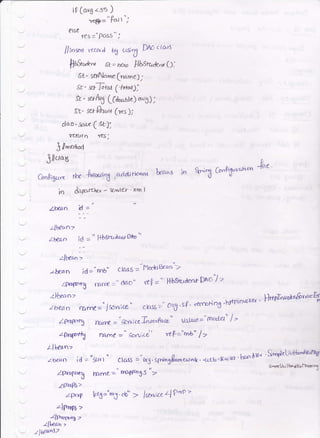 if (avg <35)
res="Fail";
else
res="Pass";
//insert record by using DAO class
HbStudent st=new HbStudent();
st. setName(name);
st. setTotal (total);
st. setAvg ((double) avg);
st. setResult (res);
dao.save(st);
return res;
}//method
}//class
Configure the following additional beans in Spring Configuration file
in dispatcher-servlet.xml
<bean id="
</bean>
<bean id="HbStudentDao"
</bean>
<bean id="mb" class="ModelBean">
<property name="dao" ref="HbStudentDAO"/>
</bean>
<bean name="/service" class="org.sf.remoting.httpinvoker.HttpInvokerServiceEx
<property name="serviceInterface" value="model"/>
<property name="service" ref="mb"/>
</bean>
<bean id="surl" class="org.springframework.web.servlet.handler.SimpleUrlHandlerMapp
<property name="mappings">
<props>
<prop key="mg.cb"> /service</prop>
</props>
</property>
</bean>
</beans>